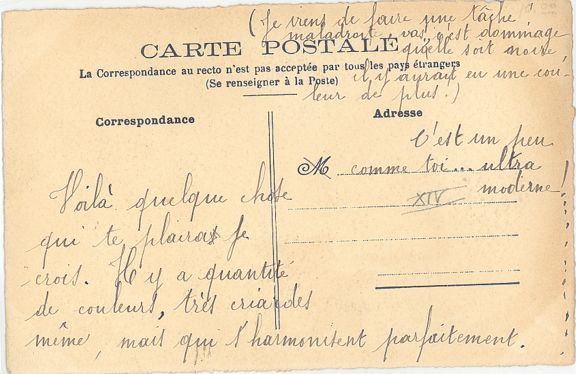 (Je viens de faire une tâche
maladroite, vas, c'est dommage
qu'elle soit noire,
il y aurait eu une cou-
leur de plus!)
CARTE POSTALE
La Correspondance au recto n'est pas acceptée par tous les pays étrangers
(Se renseigner à la Poste)
Correspondance
Adresse
Voilà quelque chose
qui te plaira je
crois. Il y a quantité
de couleurs, très criardes
même, mais qui s'harmonisent parfaitement.
C'est un peu
M comme toi... ultra
moderne!
XIV